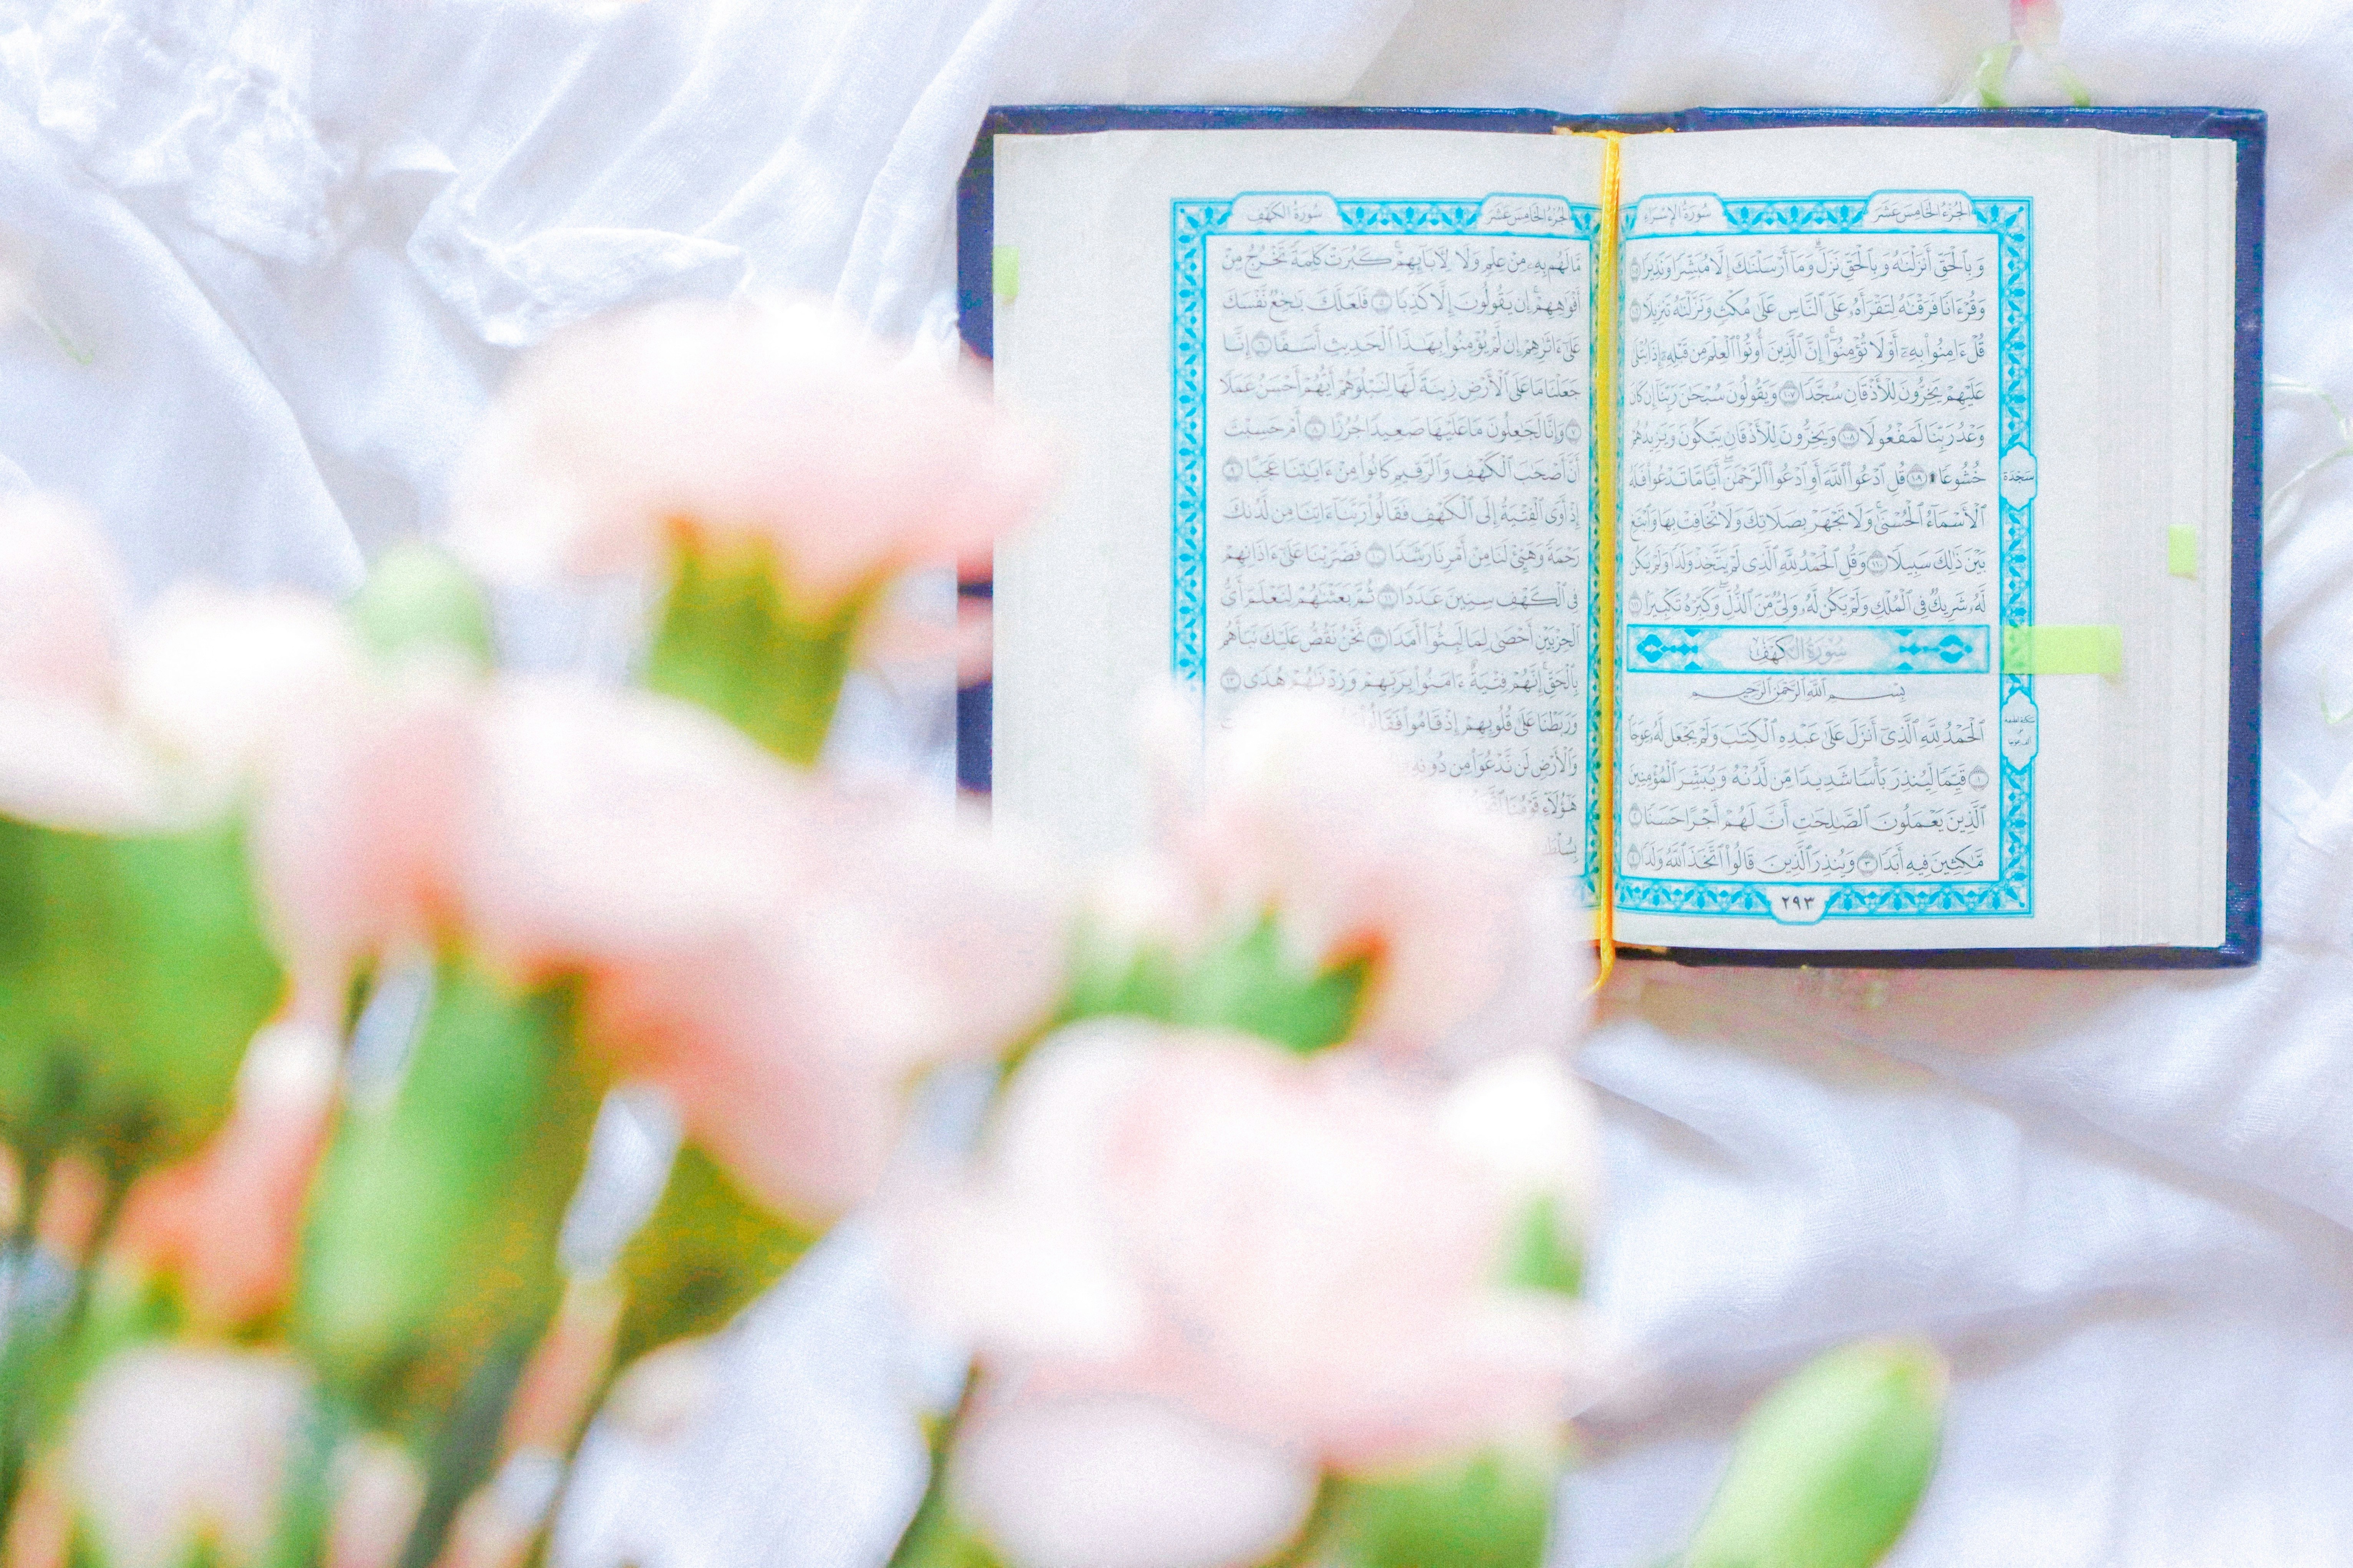 الجزء الخامس عشر
سورة الإسراء
وَبِٱلْحَقِّ أَنزَلْنَٰهُ وَبِٱلْحَقِّ نَزَلَ ۗ وَمَآ أَرْسَلْنَٰكَ إِلَّا مُبَشِّرًا وَنَذِيرًا ١٠٥
وَقُرْءَانًا فَرَقْنَٰهُ لِتَقْرَأَهُۥ عَلَى ٱلنَّاسِ عَلَىٰ مُكْثٍ وَنَزَّلْنَٰهُ تَنزِيلًا ١٠٦
قُلْ ءَامِنُوا۟ بِهِۦٓ أَوْ لَا تُؤْمِنُوٓا۟ ۚ إِنَّ ٱلَّذِينَ أُوتُوا۟ ٱلْعِلْمَ مِن قَبْلِهِۦٓ إِذَا يُتْلَىٰ
عَلَيْهِمْ يَخِرُّونَ لِلْأَذْقَانِ سُجَّدًا ١٠٧ وَيَقُولُونَ سُبْحَٰنَ رَبِّنَآ إِن كَانَ
وَعْدُ رَبِّنَا لَمَفْعُولًا ١٠٨ وَيَخِرُّونَ لِلْأَذْقَانِ يَبْكُونَ وَيَزِيدُهُمْ
خُشُوعًا ۩ ١٠٩ قُلِ ٱدْعُوا۟ ٱللَّهَ أَوِ ٱدْعُوا۟ ٱلرَّحْمَٰنَ ۖ أَيًّا مَّا تَدْعُوا۟ فَلَهُ
ٱلْأَسْمَآءُ ٱلْحُسْنَىٰ ۚ وَلَا تَجْهَرْ بِصَلَاتِكَ وَلَا تُخَافِتْ بِهَا وَٱبْتَغِ
بَيْنَ ذَٰلِكَ سَبِيلًا ١١٠ وَقُلِ ٱلْحَمْدُ لِلَّهِ ٱلَّذِى لَمْ يَتَّخِذْ وَلَدًا وَلَمْ يَكُن
لَّهُۥ شَرِيكٌ فِى ٱلْمُلْكِ وَلَمْ يَكُن لَّهُۥ وَلِىٌّ مِّنَ ٱلذُّلِّ ۖ وَكَبِّرْهُ تَكْبِيرًۢا ١١١
سورة الكهف
بِسْمِ ٱللَّهِ ٱلرَّحْمَٰنِ ٱلرَّحِيمِ
ٱلْحَمْدُ لِلَّهِ ٱلَّذِىٓ أَنزَلَ عَلَىٰ عَبْدِهِ ٱلْكِتَٰبَ وَلَمْ يَجْعَل لَّهُۥ عِوَجَا
١ قَيِّمًا لِّيُنذِرَ بَأْسًا شَدِيدًا مِّن لَّدُنْهُ وَيُبَشِّرَ ٱلْمُؤْمِنِينَ
ٱلَّذِينَ يَعْمَلُونَ ٱلصَّٰلِحَٰتِ أَنَّ لَهُمْ أَجْرًا حَسَنًا ٢
مَّٰكِثِينَ فِيهِ أَبَدًا ٣ وَيُنذِرَ ٱلَّذِينَ قَالُوا۟ ٱتَّخَذَ ٱللَّهُ وَلَدًا ٤
٢٩٣
سجدة
الجزء الخامس عشر
سورة الكهف
مَّا لَهُم بِهِۦ مِنْ عِلْمٍ وَلَا لِءَابَآئِهِمْ ۚ كَبُرَتْ كَلِمَةً تَخْرُجُ مِنْ
أَفْوَٰهِهِمْ ۚ إِن يَقُولُونَ إِلَّا كَذِبًا ٥ فَلَعَلَّكَ بَٰخِعٌ نَّفْسَكَ
عَلَىٰٓ ءَاثَٰرِهِمْ إِن لَّمْ يُؤْمِنُوا۟ بِهَٰذَا ٱلْحَدِيثِ أَسَفًا ٦ إِنَّا
جَعَلْنَا مَا عَلَى ٱلْأَرْضِ زِينَةً لَّهَا لِنَبْلُوَهُمْ أَيُّهُمْ أَحْسَنُ عَمَلًا
٧ وَإِنَّا لَجَٰعِلُونَ مَا عَلَيْهَا صَعِيدًا جُرُزًا ٨ أَمْ حَسِبْتَ
أَنَّ أَصْحَٰبَ ٱلْكَهْفِ وَٱلرَّقِيمِ كَانُوا۟ مِنْ ءَايَٰتِنَا عَجَبًا ٩
إِذْ أَوَى ٱلْفِتْيَةُ إِلَى ٱلْكَهْفِ فَقَالُوا۟ رَبَّنَآ ءَاتِنَا مِن لَّدُنكَ
رَحْمَةً وَهَيِّئْ لَنَا مِنْ أَمْرِنَا رَشَدًا ١٠ فَضَرَبْنَا عَلَىٰٓ ءَاذَانِهِمْ
فِى ٱلْكَهْفِ سِنِينَ عَدَدًا ١١ ثُمَّ بَعَثْنَٰهُمْ لِنَعْلَمَ أَىُّ
ٱلْحِزْبَيْنِ أَحْصَىٰ لِمَا لَبِثُوٓا۟ أَمَدًا ١٢ نَّحْنُ نَقُصُّ عَلَيْكَ نَبَأَهُم
بِٱلْحَقِّ ۚ إِنَّهُمْ فِتْيَةٌ ءَامَنُوا۟ بِرَبِّهِمْ وَزِدْنَٰهُمْ هُدًى ١٣
وَرَبَطْنَا عَلَىٰ قُلُوبِهِمْ إِذْ قَامُوا۟ فَقَالُوا۟
وَٱلْأَرْضِ لَن نَّدْعُوَا۟ مِن دُونِهِۦٓ
هَٰٓؤُلَآءِ قَوْمُنَا